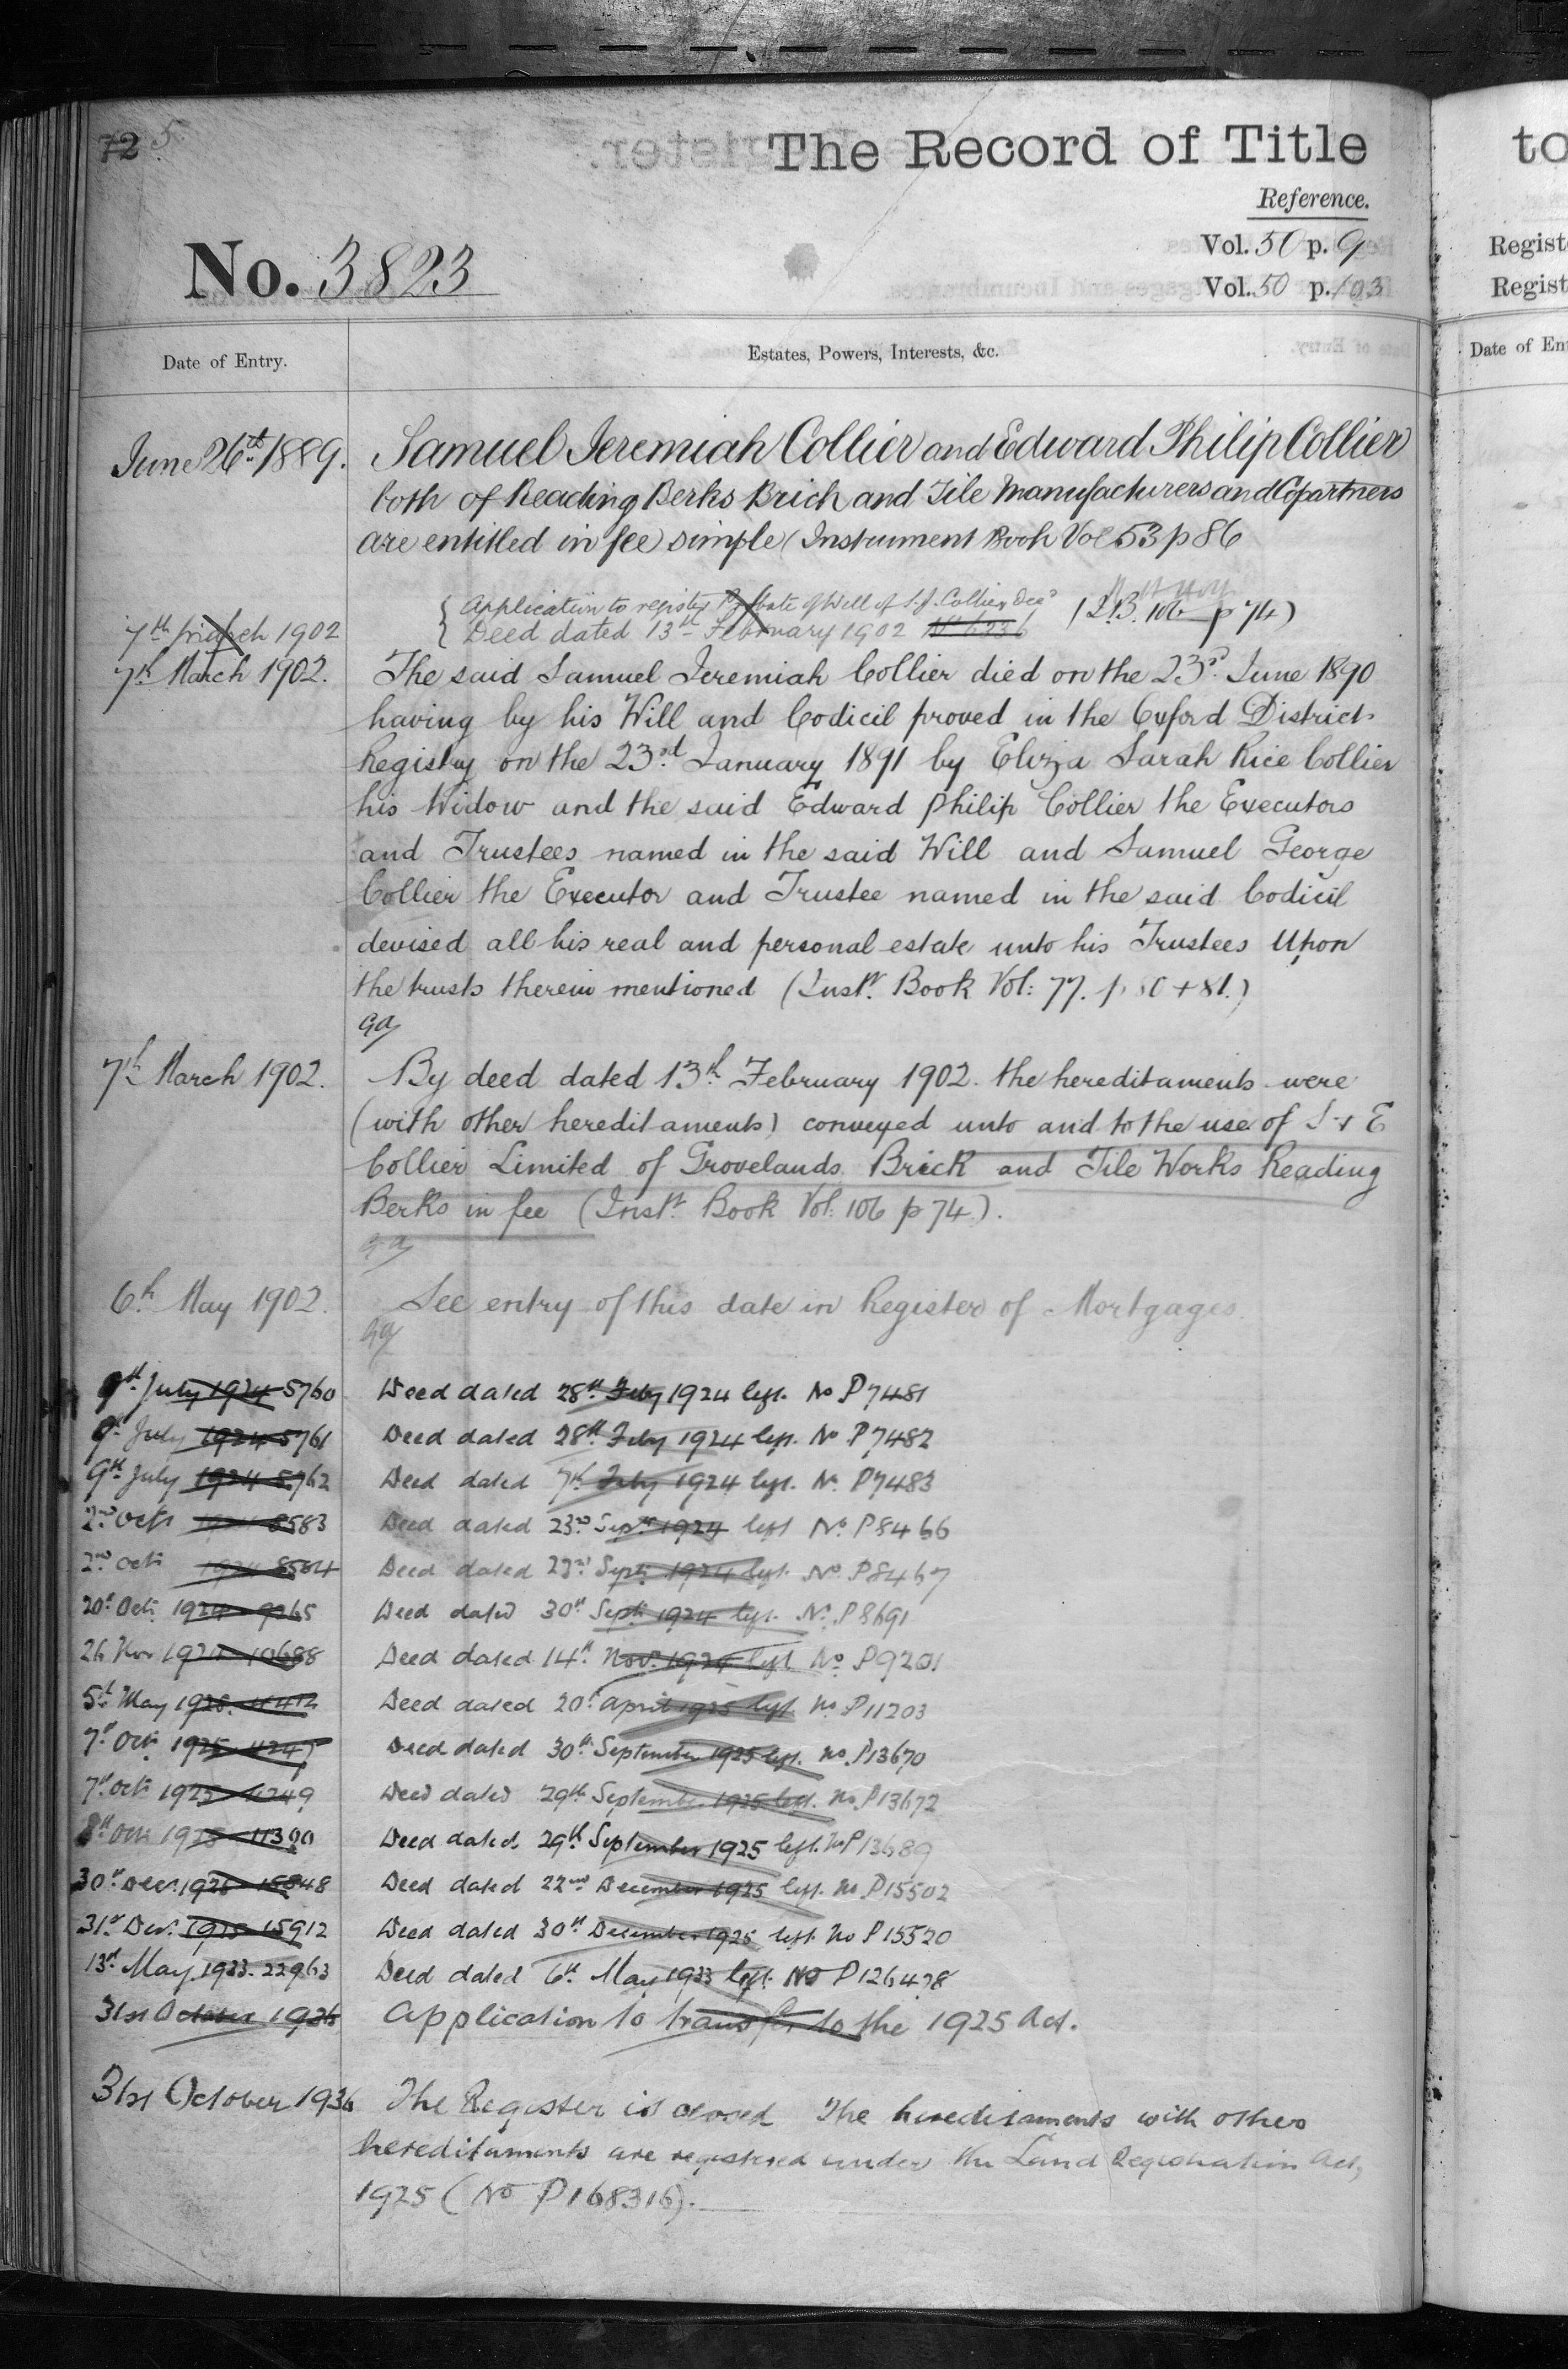 72 5
The Record of Title
Reference.
No. 3823
Vol. 50 p. 9
Vol. 50 p. 103
Date of Entry.
Estates, Powers, Interests, &c.
June 26th 1889.
Samuel Jeremiah Collier and Edward Philip Collier
both of Reading Berks Brick and Tile Manufacturers and Copartners
are entitled in fee simple (Instrument Book Vol 53 p 86
7th March 1902
Application to register Probate of Will of S. J. Collier Decd
Deed dated 13th February 1902 (I.B. 106 p 74)
7th March 1902.
The said Samuel Jeremiah Collier died on the 23rd June 1890
having by his Will and Codicil proved in the Oxford District
Registry on the 23rd January 1891 by Eliza Sarah Rice Collier
his Widow and the said Edward Philip Collier the Executors
and Trustees named in the said Will and Samuel George
Collier the Executor and Trustee named in the said Codicil
devised all his real and personal estate unto his Trustees Upon
the trusts therein mentioned (Inst. Book Vol: 77. p 80 + 81.)
7th March 1902.
By deed dated 13th February 1902. the hereditaments were
(with other hereditaments) conveyed unto and to the use of S & E
Collier Limited of Grovelands Brick and Tile Works Reading
Berks in fee (Inst. Book Vol: 106 p 74).
6th May 1902.
See entry of this date in Register of Mortgages.
9th July 1924 5760 Deed dated 28th Feby 1924 left. No P7481
9th July 1924 5761 Deed dated 28th Feby 1924 left. No P7482
9th July 1924 5762 Deed dated 7th July 1924 left. No P7483
2nd Octr 8583 Deed dated 23rd Septr 1924 left No. P8466
2nd Octr 1924 8584 Deed dated 23rd Septr 1924 left. No. P8467
20th Octr 1924 9265 Deed dated 30th Septr 1924 left. No. P8691
26 Nov 1924 10688 Deed dated 14th Novr 1924 left No P9201
5th May 1925. 4412 Deed dated 20th April 1925 left. No. P11203
7th Octr 1925 Deed dated 30th September 1925 left. No. P13670
7th Octr 1925 Deed dated 29th September 1925 left. No. P13672
8th Octr 1925 11390 Deed dated 29th September 1925 left. No P13689
30th Decr. 1925 15848 Deed dated 22nd December 1925 left. No P15502
31st Decr. 1925 15912 Deed dated 30th December 1925 left No P15520
13th May 1933. 22963 Deed dated 6th May 1933 left. No P126478
31st October 1936 Application to transfer to the 1925 Act.
31st October 1936
The Register is closed The hereditaments with other
hereditaments are registered under the Land Registration Act,
1925 (No P168316).
to
Regist
Regist
Date of En